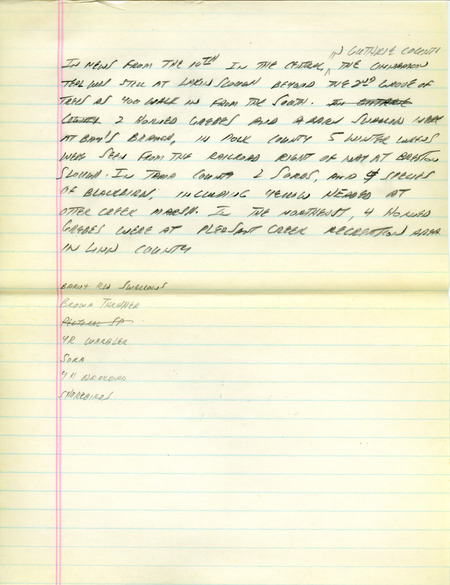 IN GUTHRIE COUNTY
IN NEWS FROM THE 10TH IN THE CENTRAL, THE CINNAMON
TEAL WAS STILL AT LAKIN SLOUGH BEYOND THE 2ND GROVE OF
TREES AS YOU WALK IN FROM THE SOUTH. IN GUTHRIE
COUNTY 2 HORNED GREBES AND A BARN SWALLOW WERE
AT BAY'S BRANCH, IN POLK COUNTY 5 WINTER WRENS
WERE SEEN FROM THE RAILROAD RIGHT OF WAY AT
SLOUGH. IN TAMA COUNTY 2 SORAS, AND SPECIES
OF BLACKBIRDS, INCLUDING YELLOW HEADED AT
OTTER CREEK MARSH. IN THE NORTHEAST, 4 HORNED
GREBES WERE AT PLEASANT CREEK RECREATION AREA
IN LINN COUNTY
SWALLOWS
BROWN THRASHER
PECTORAL SP
YR WARBLER
SORA
YH
SHOREBIRDS